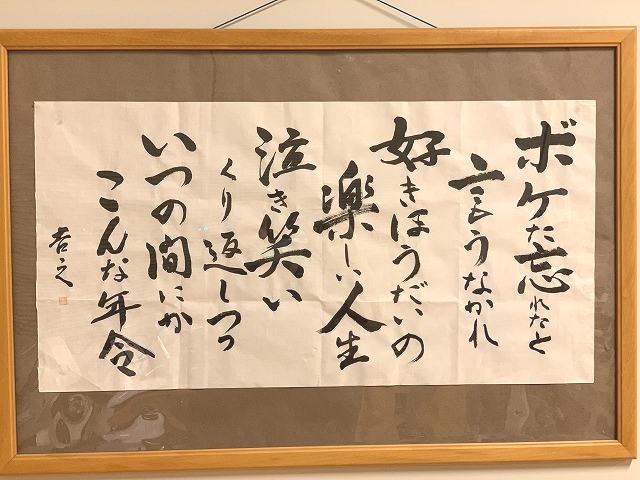 ボケた忘れたと
言うなかれ
好きほうだいの
楽しい人生
泣き笑い
くり返しつつ
いつの間にか
こんな年令